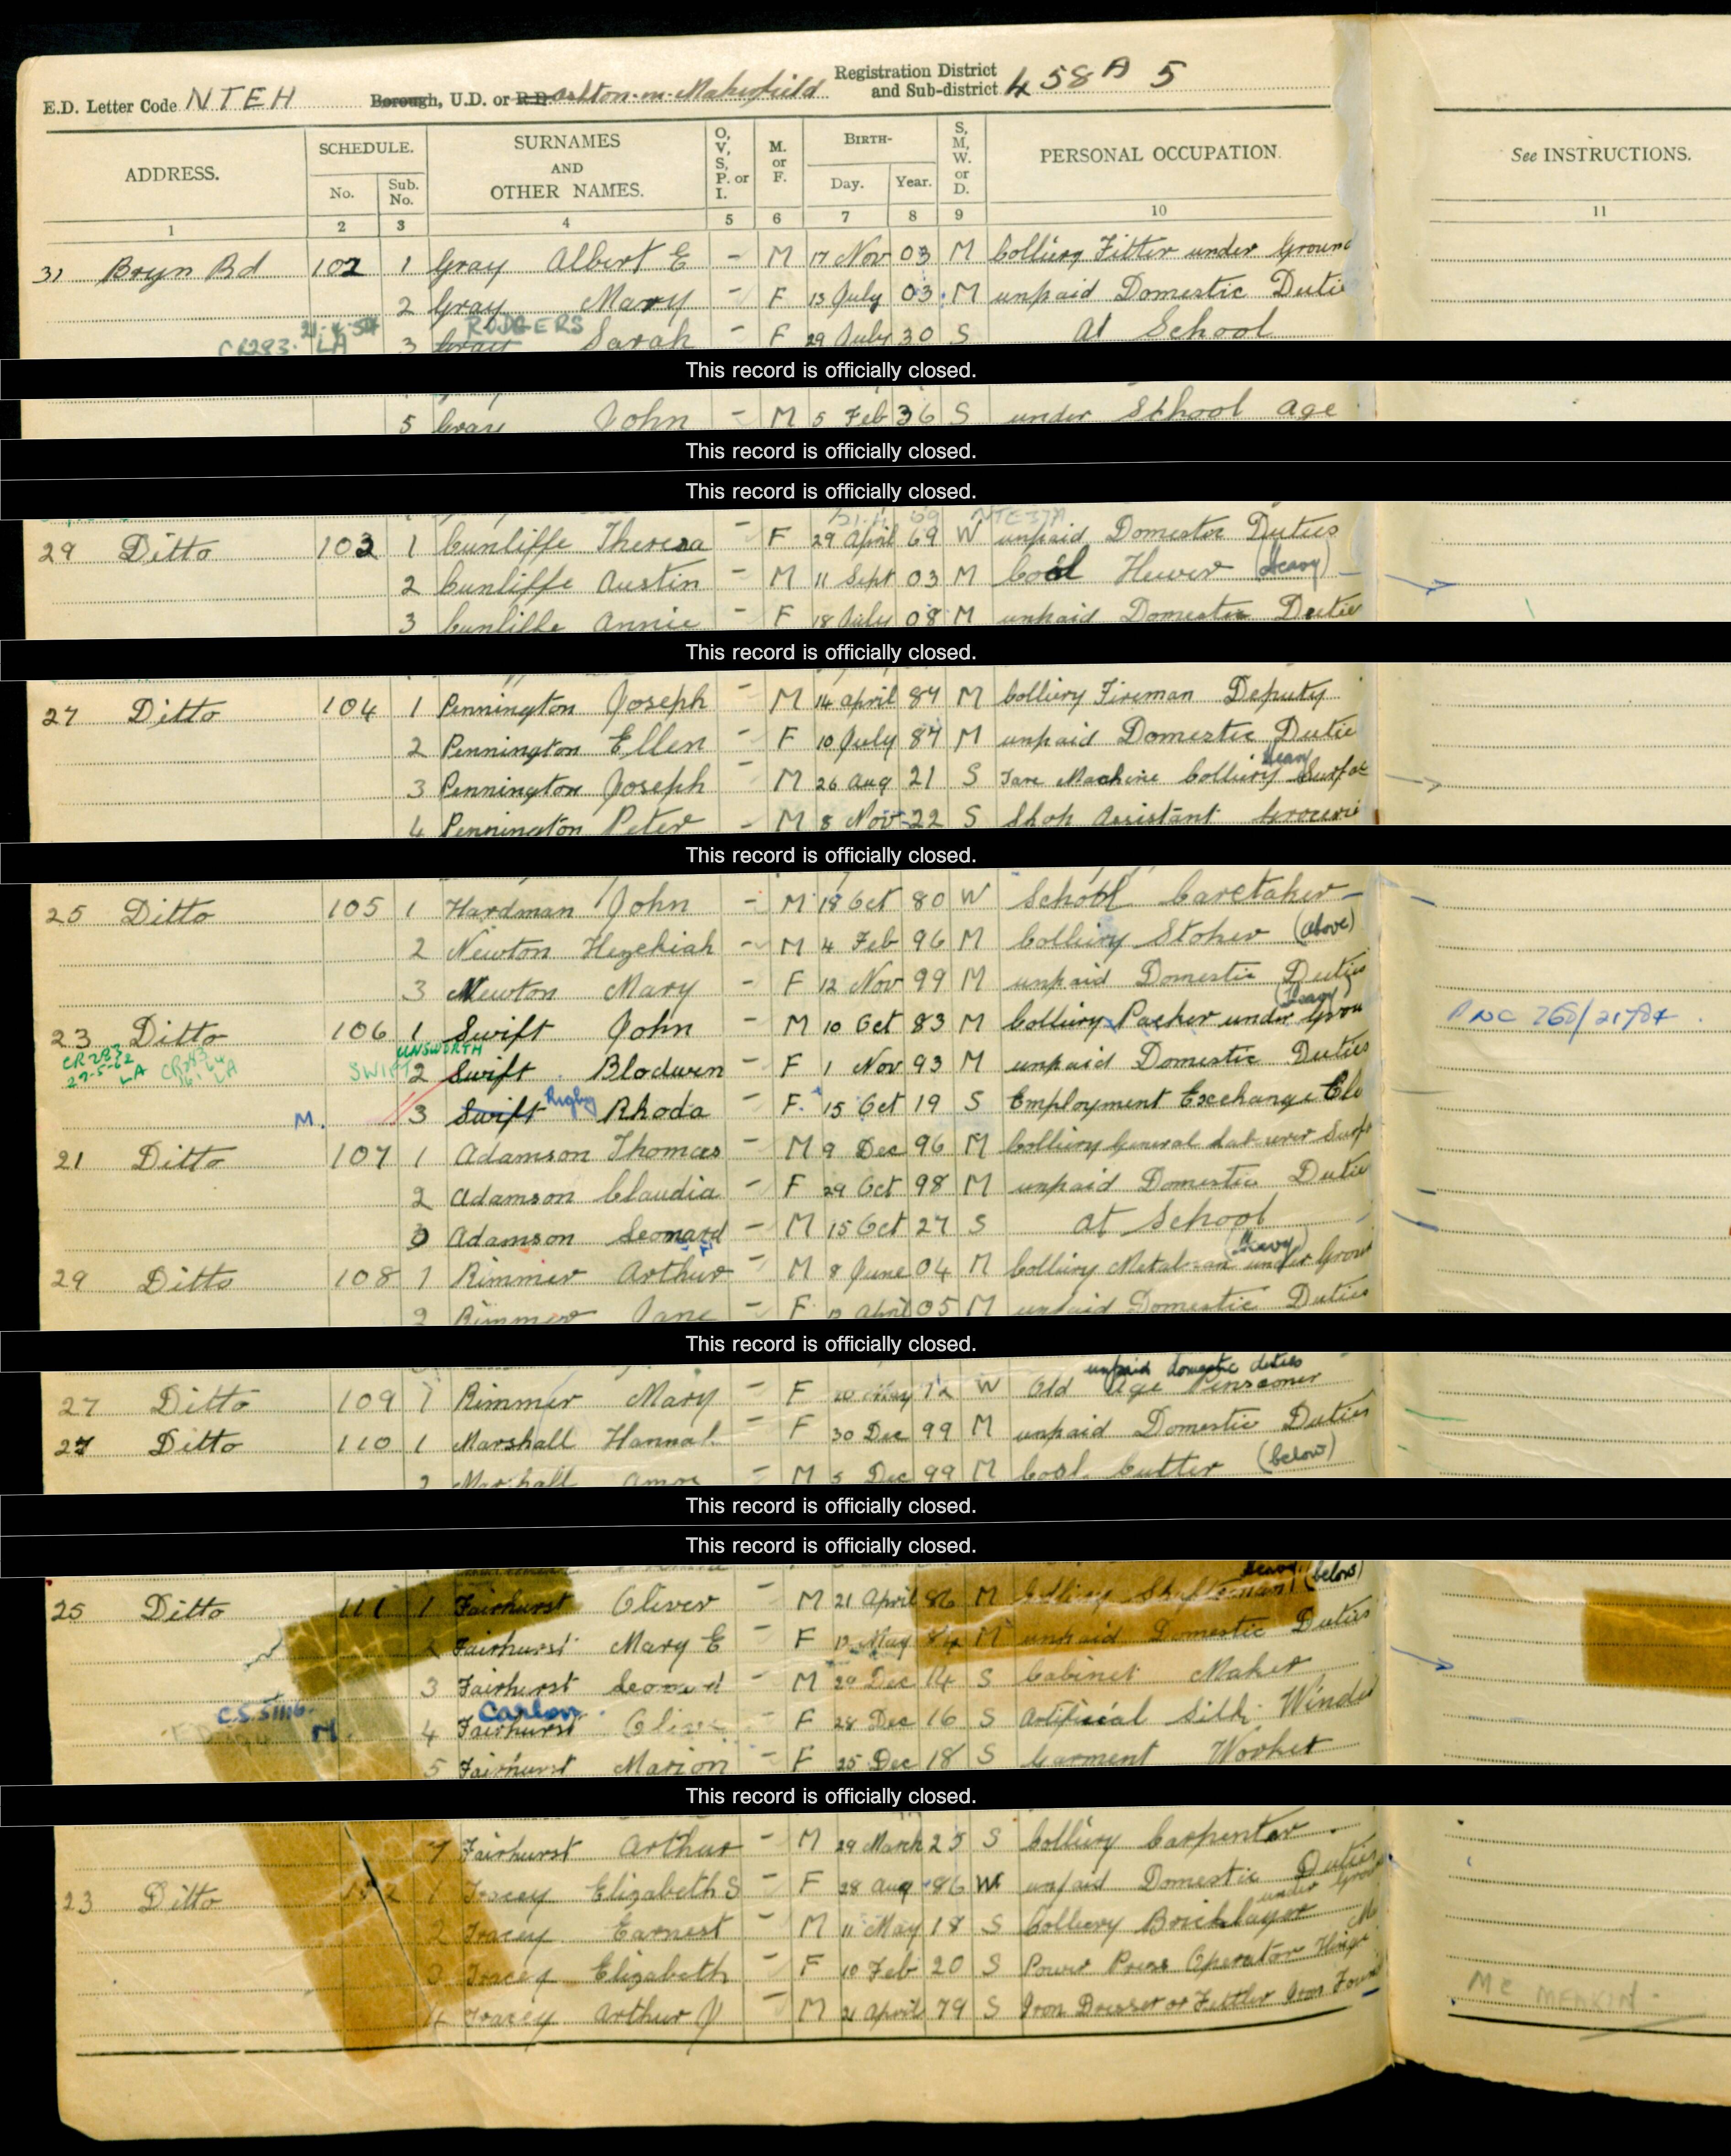 E.D. Letter Code NTEH Borough, U.D. or R.D. Ashton-in-Makerfield Registration District and Sub-district 458A 5
ADDRESS. SCHEDULE. No. Sub. No. SURNAMES AND OTHER NAMES. O, V, S, P. or I. M. or F. BIRTH- Day. Year. S, M, W. or D. PERSONAL OCCUPATION. See INSTRUCTIONS.
1 2 3 4 5 6 7 8 9 10 11
31 Bryn Rd 102 1 Gray Albert E - M 17 Nov 03 M Colliery Fitter under Ground
2 Gray Mary - F 13 July 03 M unpaid Domestic Dutie
CR283. LA RODGERS
3 Gray Sarah - F 29 July 30 S At School
This record is officially closed.
5 Gray John - M 5 Feb 36 S under School age
This record is officially closed.
This record is officially closed.
29 Ditto 103 1 Cunliffe Theresa - F 29 April 69 W unpaid Domestic Duties
2 Cunliffe Austin - M 11 Sept 03 M Coal Hewer (Heavy)
3 Cunliffe Annie - F 18 July 08 M unpaid Domestic Dutie
This record is officially closed.
27 Ditto 104 1 Pennington Joseph - M 14 April 87 M Colliery Fireman Deputy
2 Pennington Ellen - F 10 July 87 M unpaid Domestic Dutie
3 Pennington Joseph - M 26 Aug 21 S Tare Machine Colliery Surfac
4 Pennington Peter - M 8 Nov 22 S Shop Assistant Grocerie
This record is officially closed.
25 Ditto 105 1 Hardman John - M 18 Oct 80 W School Caretaker
2 Newton Hezekiah - M 4 Feb 96 M Colliery Stoker (above)
3 Newton Mary - F 12 Nov 99 M unpaid Domestic Duties
(Heavy)
23 Ditto 106 1 Swift John - M 10 Oct 83 M Colliery Packer under Grou
CR283 LA UNSWORTH
SWIFT 2 Swift Blodwen - F 1 Nov 93 M unpaid Domestic Duties
M. 3 Swift Rigby Rhoda - F 15 Oct 19 S Employment Exchange Cle
21 Ditto 107 1 Adamson Thomas - M 9 Dec 96 M Colliery General Labourer Surf
2 Adamson Claudia - F 29 Oct 98 M unpaid Domestic Dutie
3 Adamson Leonard - M 15 Oct 27 S at School
(Heavy)
29 Ditto 108 1 Rimmer Arthur - M 8 June 04 M Colliery Metalman under Groun
2 Rimmer Jane - F 12 April 05 M unpaid Domestic Duties
This record is officially closed.
unpaid domestic duties
27 Ditto 109 1 Rimmer Mary - F May 72 W Old Age Pensioner
27 Ditto 110 1 Marshall Hannah - F 30 Dec 99 M unpaid Domestic Duties
2 Marshall Amos - M 5 Dec 99 M Coal Cutter (below)
This record is officially closed.
This record is officially closed.
Heavy (below)
25 Ditto 111 1 Fairhurst Oliver - M 21 April 86 M Colliery Shaftsman
2 Fairhurst Mary E - F 12 May 84 M unpaid Domestic Duties
3 Fairhurst Leonard - M 29 Dec 14 S Cabinet Maker
C.S. 5/116. M. Carlon
4 Fairhurst Olive - F 28 Dec 16 S Artificial Silk Winder
5 Fairhurst Marion - F 25 Dec 18 S Garment Worker
This record is officially closed.
7 Fairhurst Arthur - M 29 March 25 S Colliery Carpenter
23 Ditto 112 1 Tracey Elizabeth S - F 28 Aug 86 W unpaid Domestic Duties
under Groun
2 Tracey Earnest - M 11 May 18 S Colliery Bricklayer
3 Tracey Elizabeth - F 10 Feb 20 S Power Press Operator Hinge
4 Tracey Arthur J - M 21 April 79 S Iron Dresser or Fettler Iron Foun
MC MEAKIN